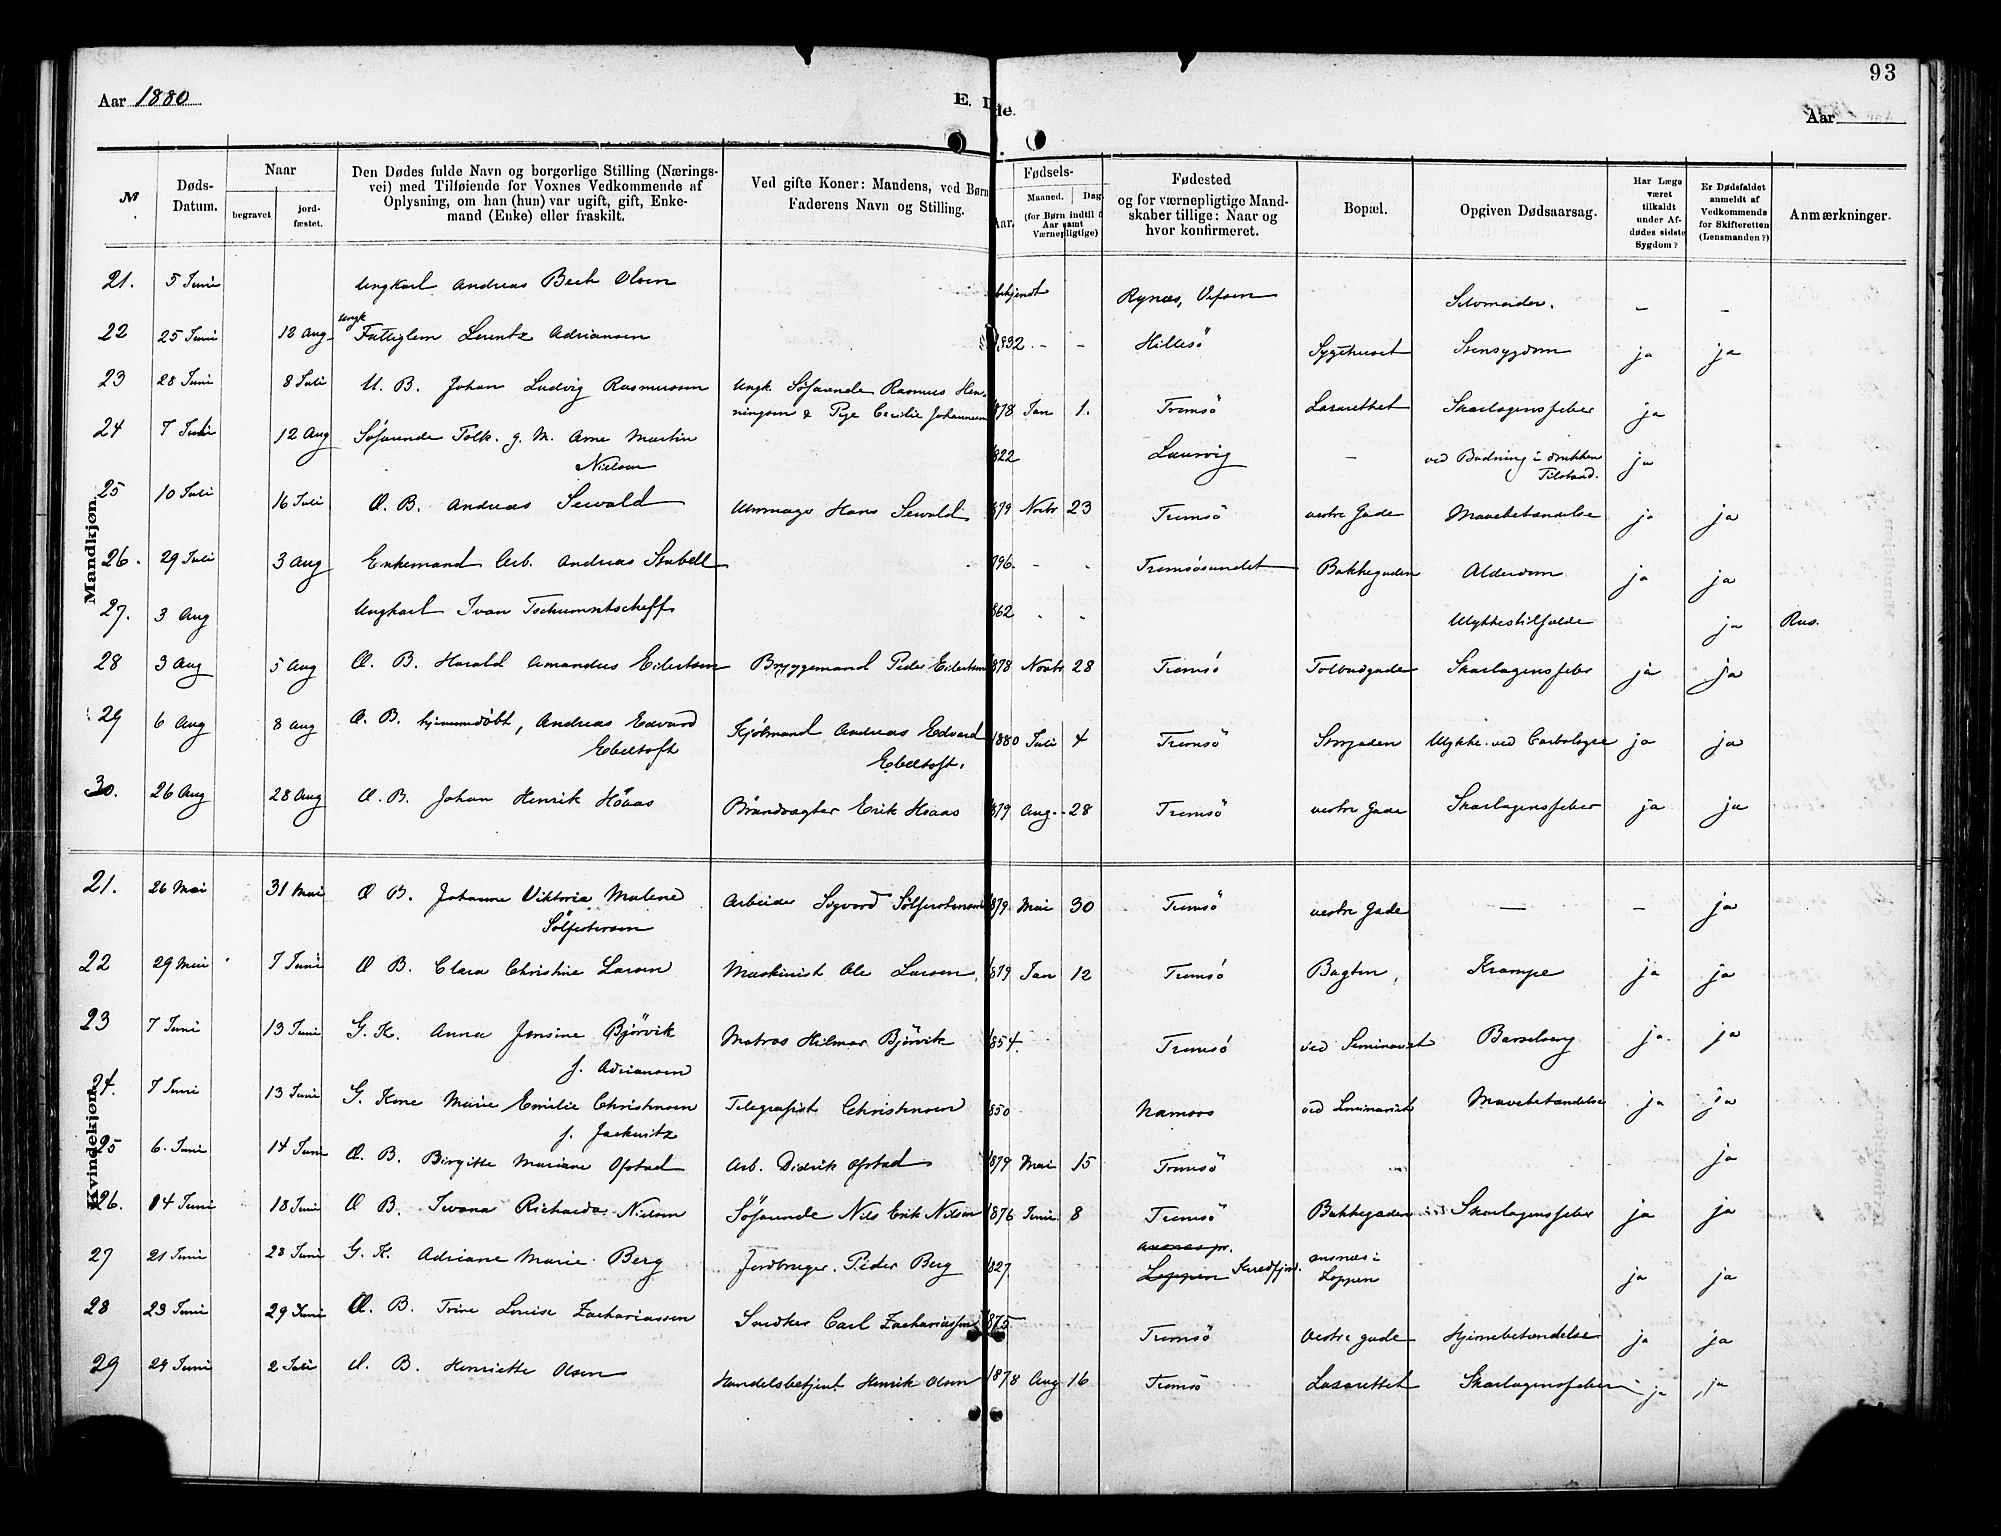 93
Aar 1880
E. D de.
Aar
№
Døds-Datum.
Naar
begravet
jord-fæstet.
Den Dødes fulde Navn og borgerlige Stilling (Nærings-
vei) med Tilføiende for Voxnes Vedkommende af
Oplysning, om han (hun) var ugift, gift, Enke-
mand (Enke) eller fraskilt.
Ved gifte Koner: Mandens, ved Børn
Faderens Navn og Stilling.
Fødsels-
Aar.
Maaned. Dag.
(for Børn indtil
Aar samt
Værnepligtige)
Fødested
og for værnepligtige Mand-
skaber tillige: Naar og
hvor konfirmeret.
Bopæl.
Opgiven Dødsaarsag.
Har Læge
været
tilkaldt
under Af-
dødes sidste
Sygdom?
Er Dødsfaldet
anmeldt af
Vedkommende
for Skifteretten
(Lensmanden?)
Anmærkninger.
Mandkjøn.
21. 5 Juni Ungkarl Andreas Beck Olsen ubekjendt Rynæs, Vefsen Selvmorder. – –
22 25 Juni 12 Aug Ungk Fattiglem Lorentz Adriansen 1832 - - Hillesö Sygehuset Stensygdom ja ja
23 28 Juni 8 Juli U. B. Johan Ludvig Rasmussen Ungk Söfarende Rasmus Hen-
ningsen & Pige Cecilie Johannesen 1878 Jan 1. Tromsö Lazarettet Skarlagensfeber ja
24 7 Juli 12 Aug Söfarende Folk. g. M. Arne Martin
Nielsen 822 Laurvig – ved Badning i drukken
Tilstand. ja
25 10 Juli 16 Juli Æ. B. Andreas Sewald Uhrmager Hans Sewald 879 Novbr 23 Tromsö vestre Gade Mavebetændelse ja ja
26. 29 Juli 3 Aug Enkemand Arb. Andreas Stabell 796 - - Tromsösundet Bakkegaden Alderdom ja ja
27. 3 Aug Ungkarl Ivan Tschumntscheff 862 - - Ulykkestilfælde ja Rus.
28 3 Aug 5 Aug Æ. B. Harald Amandus Eilertsen Bryggemand Peder Eilertsen 878 Novbr 28 Tromsö Toldbodgade Skarlagensfeber ja ja
29 6 Aug 8 Aug Æ. B. hjemmedöbt, Andreas Edvard
Ebeltoft Kjöbmand Andreas Edvard
Ebeltoft. 1880 Juli 4 Tromsö Storgaden Ulykke ved Carbolsyre ja ja
30. 26 Aug 28 Aug Æ. B. Johan Henrik Haas Brandvagter Erik Haas 879 Aug. 28 Tromsö vestre Gade Skarlagensfeber ja ja
Kvindekjøn.
21. 26 Mai 31 Mai Æ B. Johanne Viktoria Malene
Sölfestersen Arbeider Sigvard Sölfestersen 879 Mai 30 Tromsö vestre Gade – – ja
22 29 Mai 7 Juni Æ B. Clara Christine Larsen Maskinist Ole Larsen 1879 Jan 12 Tromsö Bagten Krampe ja ja
23 7 Juni 13 Juni G. K. Anna Jensine Bjørvik
f. Adriansen Matros Hilmar Bjørvik 1854. Tromsö ved Seminariet Barselseng ja ja
24. 7 Juni 13 Juni G. Kone Marie Emilie Christensen
f. Jackwitz Telegrafist Christensen 850 Namsos ved Seminariet Mavebetændelse ja ja
25 6. Juni 14 Juni Æ. B. Birgitte Mariane Ofstad Arb. Didrik Ofstad 1879 Mai 15 Tromsö ja
26. 14 Juni 18 Juni Æ B. Jevana Richarda Nielsen Söfarende Nils Erik Nilsen 1876 Juni 8 Tromsö Bakkegaden Skarlagensfeber ja ja
27 21 Juni 23 Juni G. K. Adriane Marie Berg Jordbruger Peder Berg 827 Loppen Ansnæs i
Loppen ja ja
28 23 Juni 29 Juni Æ. B. Trine Louise Zachariassen Snedker Carl Zachariassen 1875 Tromsö Vestre gade Hjernebetændelse ja ja
29 24 Juni 2 Juli Æ. B. Henriette Olsen Handelsbetjent Henrik Olsen 1878 Aug 16 Tromsö Lazarettet Skarlagensfeber ja ja